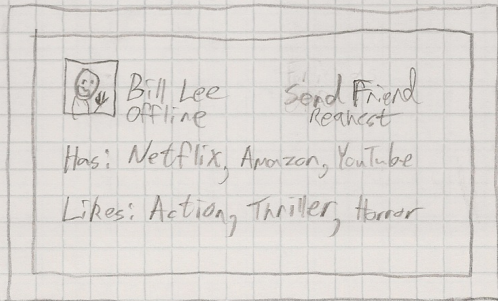 Bill Lee
Offline
Send Friend
Request
Has: Netflix, Amazon, YouTube
Likes: Action, Thriller, Horror